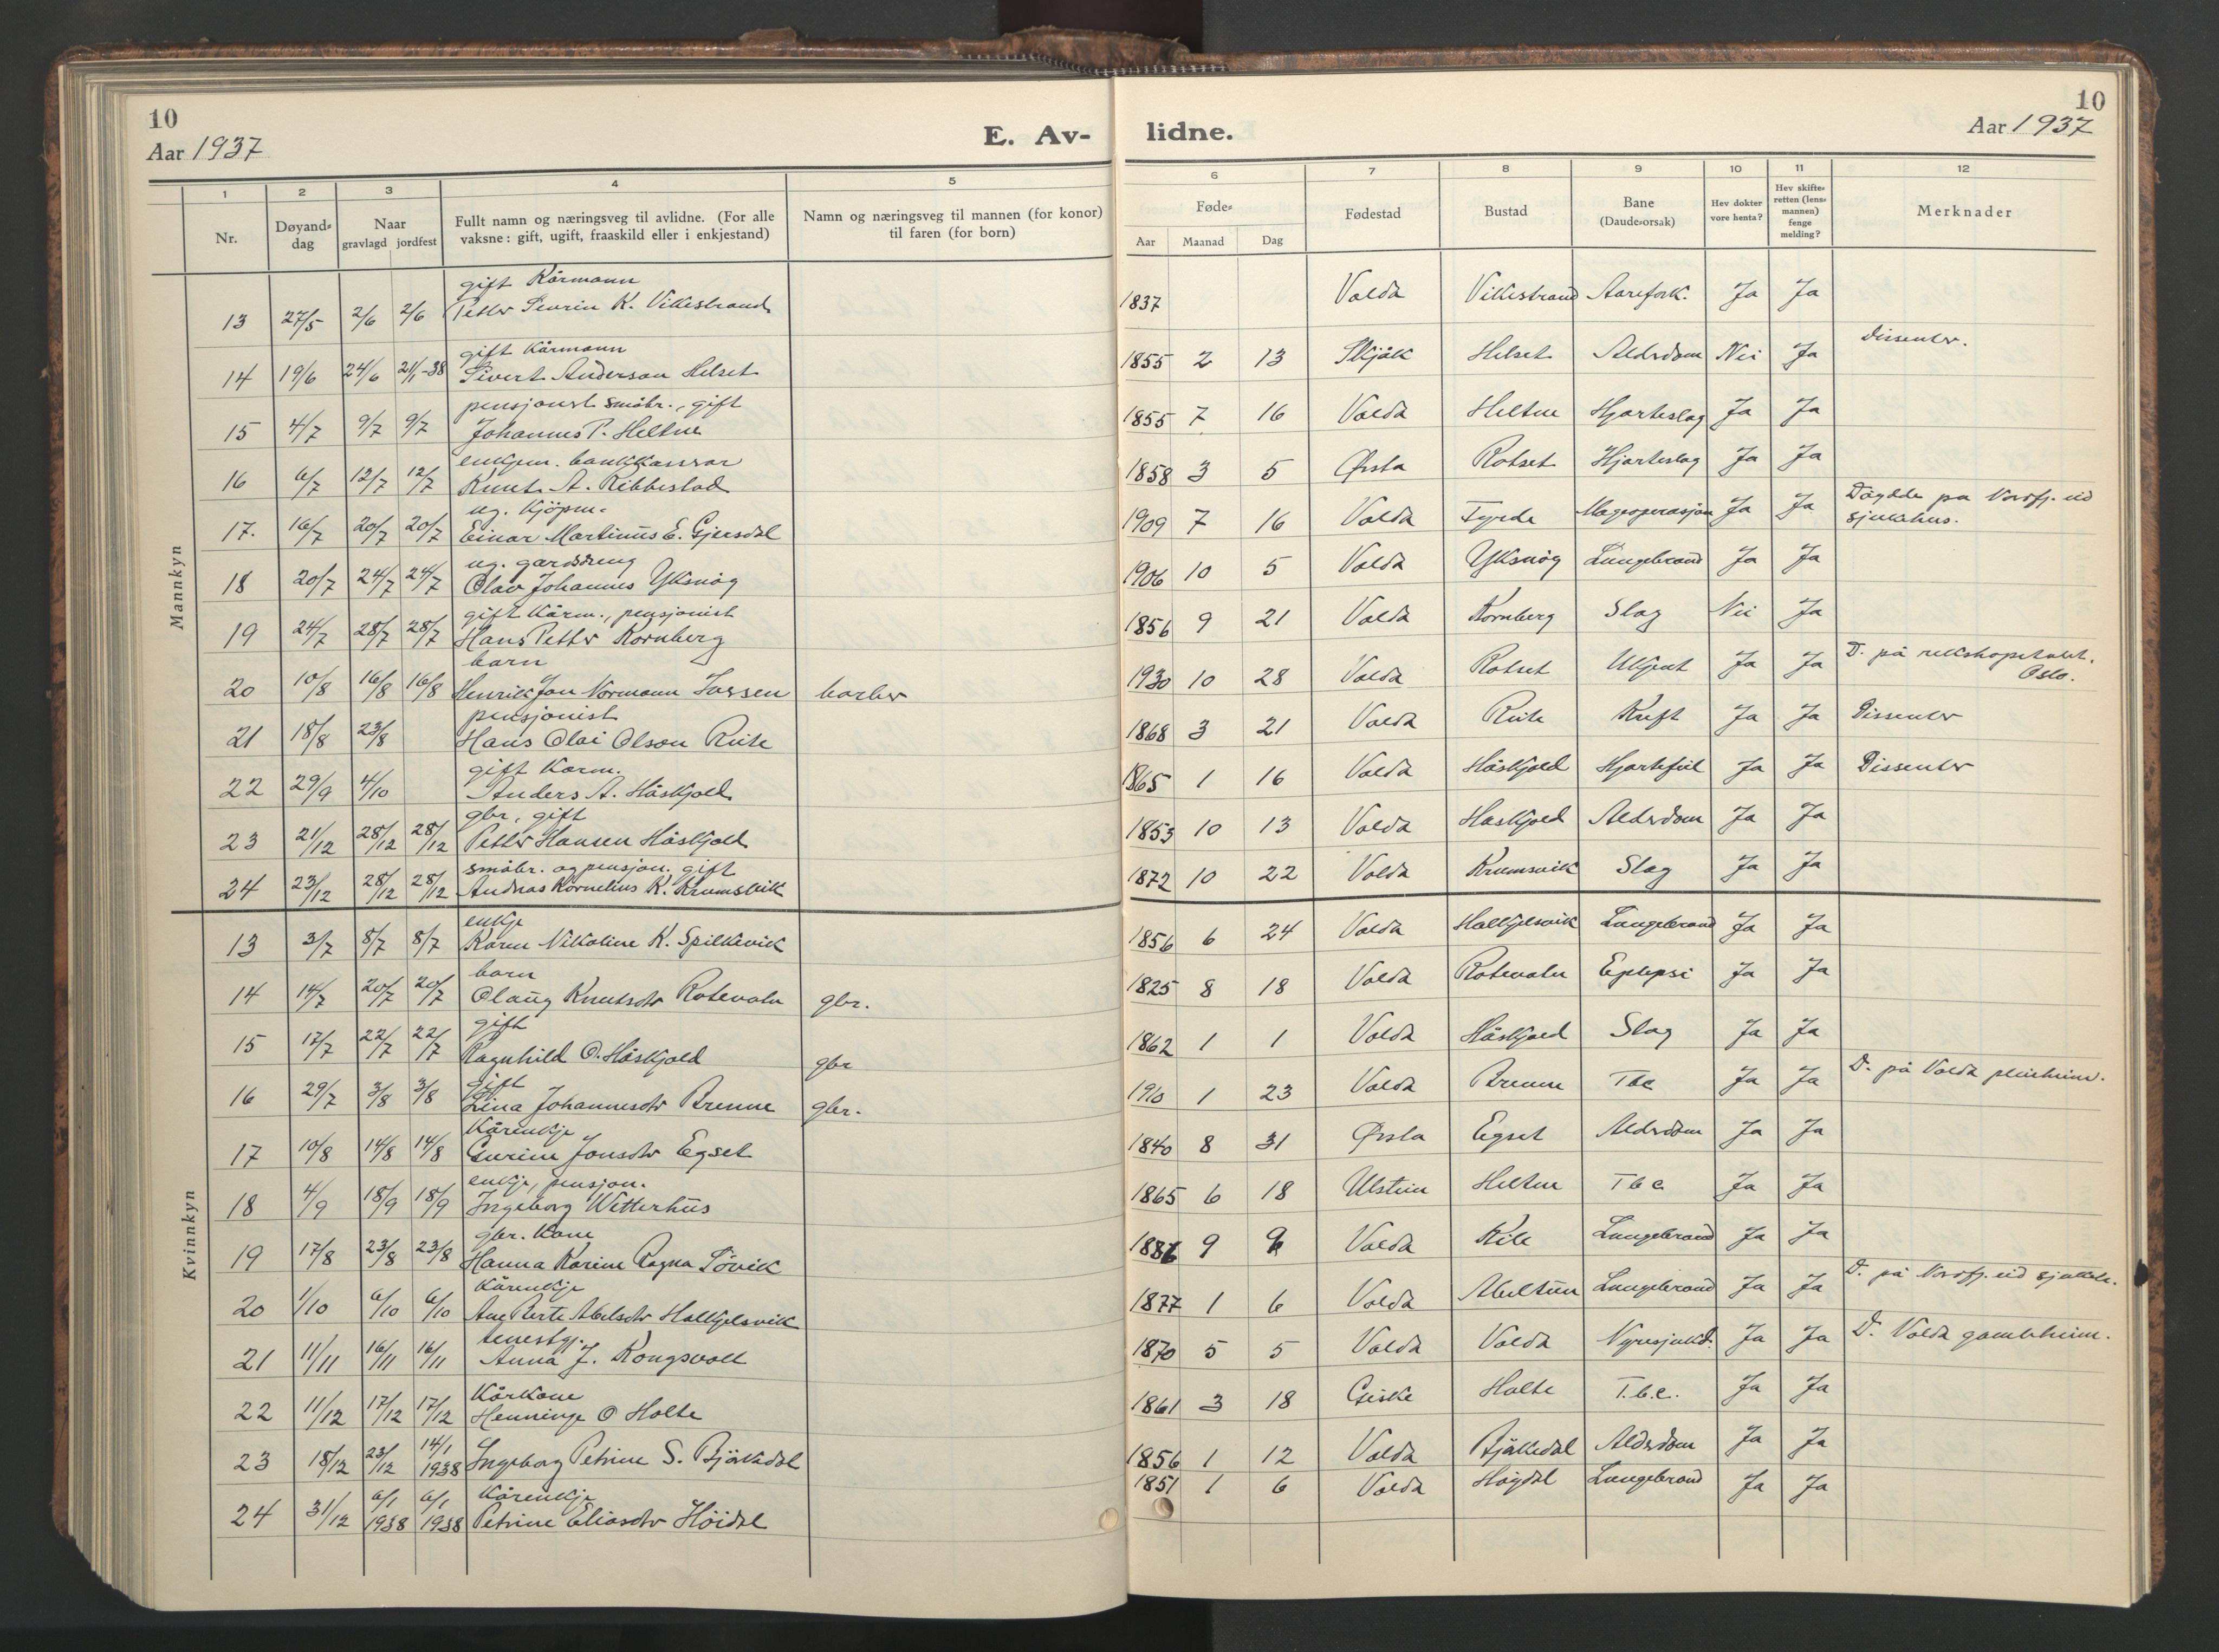 10
Aar 1937
E. Av-
lidne.
10
Aar 1937
1 2 3 4 5 6 7 8 9 10 11 12
Nr.
Døyand-
dag
Naar
gravlagd jordfest
Fullt namn og næringsveg til avlidne. (For alle
vaksne: gift, ugift, fraaskild eller i enkjestand)
Namn og næringsveg til mannen (for konor)
til faren (for born)
Føde-
Aar Maanad Dag
Fødestad
Bustad
Bane
(Daude-orsak)
Hev dokter
vore henta?
Hev skifte-
retten (lens-
mannen)
fenge
melding?
Merknader
Mannkyn
gift Kårmann
13 27/5 2/6 2/6 Petter Severin K. Vikestrand 1837 Volda Vikestrand Aarefork. Ja Ja
gift Kårmann
14 19/6 24/6 21/1-38 Sivert Anderson Helset 1855 2 13 Skjåk Helset Alderdom Nei Ja Dissenter.
pensjonert småbr., gift
15 4/7 9/7 9/7 Johannes P. Heltne 1855 7 16 Volda Heltne Hjarteslag Ja Ja
enkjem. bankkasserar
16 6/7 12/7 12/7 Knut A. Ribbestad 1858 3 5 Ørsta Rotset Hjarteslag Ja Ja
ug. Kjöpm.
17. 16/7 20/7 20/7 Einar Martinus E. Gjersdal 1909 7 16 Volda Fyrde Mageoperasjon Ja Ja Døydde pa Nordfj. eid
sjukehus.
ug. gardsdreng
18 20/7 24/7 24/7 Olav Johannes Yksnög 1906 10 5 Volda Yksnög Lungebrand Ja Ja
gift Kårm., pensjonist
19 24/7 28/7 28/7 Hans Petter Kornberg 1856 9 21 Volda Kornberg Slag Nei Ja
barn
20 10/8 16/8 16/8 Henrik Jan Normann Jossen barber 1930 10 28 Volda Rotset Ukjent Ja Ja D. på rikshospitalet.
Oslo.
pensjonist
21 18/8 23/8 Hans Olai Olson Rute 1868 3 21 Volda Rute Kreft Ja Ja Dissenter
gift Karm.
22 29/9 4/10 Anders A. Håskjold 1865 1 16 Volda Håskjold Hjartefeil Ja Ja Dissenter
gbr, gift
23 21/12 28/12 28/12 Petter Hansen Håskjold 1853 10 13 Volda Haskjold Alderdom Ja Ja
småbr. og pensjon. gift
24 23/12 28/12 28/12 Andreas Kornelius K. Krumsvik 1872 10 22 Volda Krumsvik Slag Ja Ja
Kvinnkyn
enkje
13 3/7 8/7 8/7 Karen Nikoline K. Spilkevik 1856 6 24 Volda Halkjelsvik Lungebrand Ja Ja
barn
14 14/7 20/7 20/7 Olaug Knutsdtr Rotevatn gbr. 1825 8 18 Volda Rotevatn Epilepsi Ja Ja
gift
15 17/7 22/7 22/7 Ragnhild O. Håskjold gbr 1862 1 1 Volda Håskjold Slag Ja Ja
gift
16 29/7 3/8 3/8 Lina Johannesdtr Brenne gbr. 1910 1 23 Volda Brenne Tbc Ja Ja D. på Volda pleieheim.
Kårenkje
17 10/8 14/8 14/8 Gurine Jonsdtr Egset 1840 8 31 Ørsta Egset Alderdom Ja Ja
enkje, pensjon.
18 4/9 18/9 18/9 Ingeborg Witterhus 1865 6 18 Ulstein Heltne Tbc Ja Ja
gbr. Kone
19 17/8 23/8 23/8 Hanna Karine Ragna Sövik 1886 9 9 Volda Kile Lungebrand Ja Ja
Kårenkje
20 1/10 6/10 6/10 Ane Berte Abelsdtr Halkjelsvik 1877 1 6 Volda Abeltun Lungebrand Ja Ja D. på Nordfj. eid sjukeh.
tenestgj.
21 11/11 16/11 16/11 Anna J. Kongsvoll 1870 5 5 Volda Volda Nyresjukd. Ja Ja D. Volda gamleheim.
Kårkone
22 11/12 17/12 17/12 Henninge O Holte 1861 3 18 Giske Holte T.b.c. Ja Ja
23 18/12 23/12 14/1 1938 Ingeborg Petrine S. Björkedal 1856 1 12 Volda Bjørkedal Alderdom Ja Ja
Kårenkje
24 31/12 6/1 1938 6/1 1938 Petrine Eliasdtr Höidal 1851 1 6 Volda Högdal Lungebrand Ja Ja